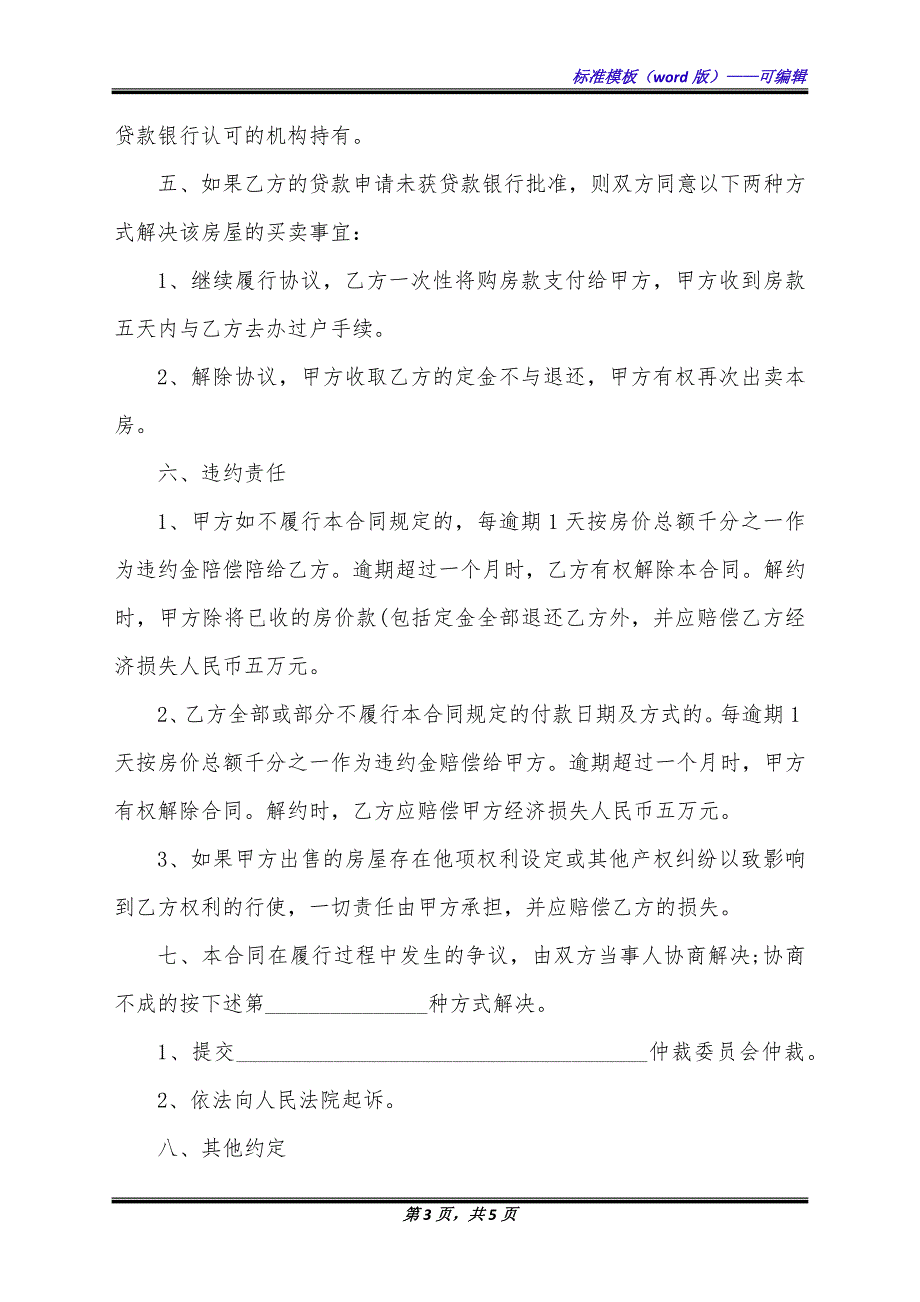 标准模板（word 版）——可编辑
贷款银行认可的机构持有。
五、如果乙方的贷款申请未获贷款银行批准，则双方同意以下两种方
式解决该房屋的买卖事宜：
1、继续履行协议，乙方一次性将购房款支付给甲方，甲方收到房款
五天内与乙方去办过户手续。
2、解除协议，甲方收取乙方的定金不与退还，甲方有权再次出卖本
房。
六、违约责任
1、甲方如不履行本合同规定的，每逾期 1 天按房价总额千分之一作
为违约金陪偿陪给乙方。逾期超过一个月时，乙方有权解除本合同。解约
时，甲方除将已收的房价款(包括定金全部退还乙方外，并应赔偿乙方经
济损失人民币五万元。
2、乙方全部或部分不履行本合同规定的付款日期及方式的。每逾期 1
天按房价总额千分之一作为违约金赔偿给甲方。逾期超过一个月时，甲方
有权解除合同。解约时，乙方应赔偿甲方经济损失人民币五万元。
3、如果甲方出售的房屋存在他项权利设定或其他产权纠纷以致影响
到乙方权利的行使，一切责任由甲方承担，并应赔偿乙方的损失。
七、本合同在履行过程中发生的争议，由双方当事人协商解决;协商
不成的按下述第_______________种方式解决。
1、提交______________________________________仲裁委员会仲裁。
2、依法向人民法院起诉。
八、其他约定
第 3 页，共 5 页